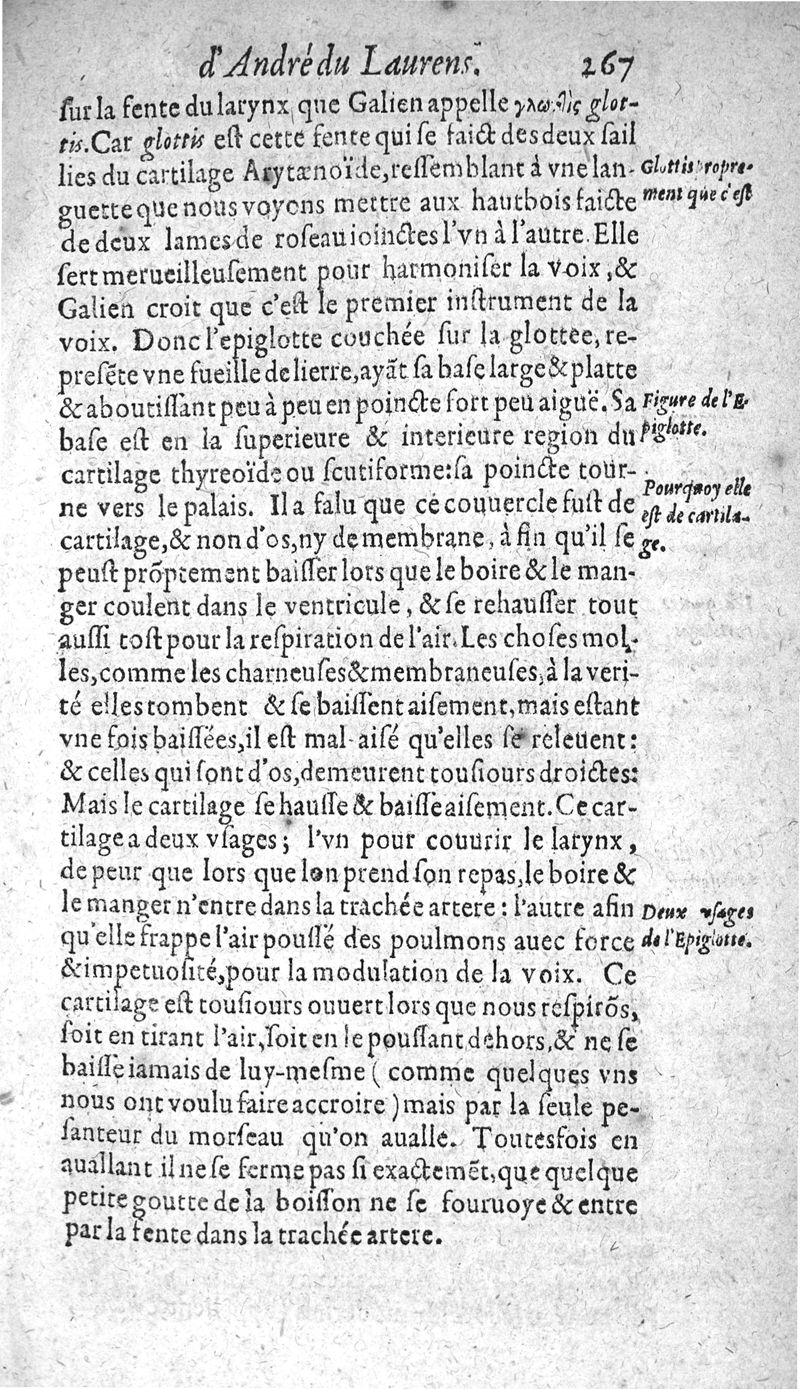 d'André du Laurens. 267
sur la fente du larynx, que Galien appelle γλωτλὶς glot-
tis. Car glottis est cette fente qui se faict des deux sail
lies du cartilage Arytænoïde, ressemblant à vne lan-
Glottis propre-
guette que nous voyons mettre aux hautbois faicte
ment que c'est
de deux lames de roseau ioinctes l'vn à l'autre. Elle
sert merueilleusement pour harmoniser la voix, &
Galien croit que c'est le premier instrument de la
voix. Donc l'epiglotte couchée sur la glottee, re-
presẽte vne fueille de lierre, ayãt sa base large & platte
& aboutissant peu à peu en poincte fort peu aiguë. Sa
Figure de l'E-
base est en la superieure & interieure region du
piglotte.
cartilage thyreoïde ou scutiforme: sa poincte tour-
ne vers le palais. Il a falu que ce couuercle fust de
Pourquoy elle
est de cartila-
cartilage, & non d'os, ny de membrane, à fin qu'il se
ge.
peust prõptement baisser lors que le boire & le man-
ger coulent dans le ventricule, & se rehausser tout
aussi tost pour la respiration de l'air. Les choses mol-
les, comme les charneuses & membraneuses, à la veri-
té elles tombent & se baissent aisement, mais estant
vne fois baissées, il est mal-aisé qu'elles se releuent:
& celles qui sont d'os, demeurent tousiours droictes:
Mais le cartilage se hausse & baisse aisement. Ce car-
tilage a deux vsages; l'vn pour couurir le larynx,
de peur que lors que lon prend son repas, le boire &
le manger n'entre dans la trachée artere: l'autre afin
Deux vsages
qu'elle frappe l'air poussé des poulmons auec force
de l'Epiglotte.
& impetuosité, pour la modulation de la voix. Ce
cartilage est tousiours ouuert lors que nous respirõs,
soit en tirant l'air, soit en le poussant dehors, & ne se
baisse iamais de luy-mesme (comme quelques vns
nous ont voulu faire accroire) mais par la seule pe-
santeur du morseau qu'on aualle. Toutesfois en
auallant il ne se ferme pas si exactemẽt, que quelque
petite goutte de la boisson ne se fouruoye & entre
par la fente dans la trachée artere.